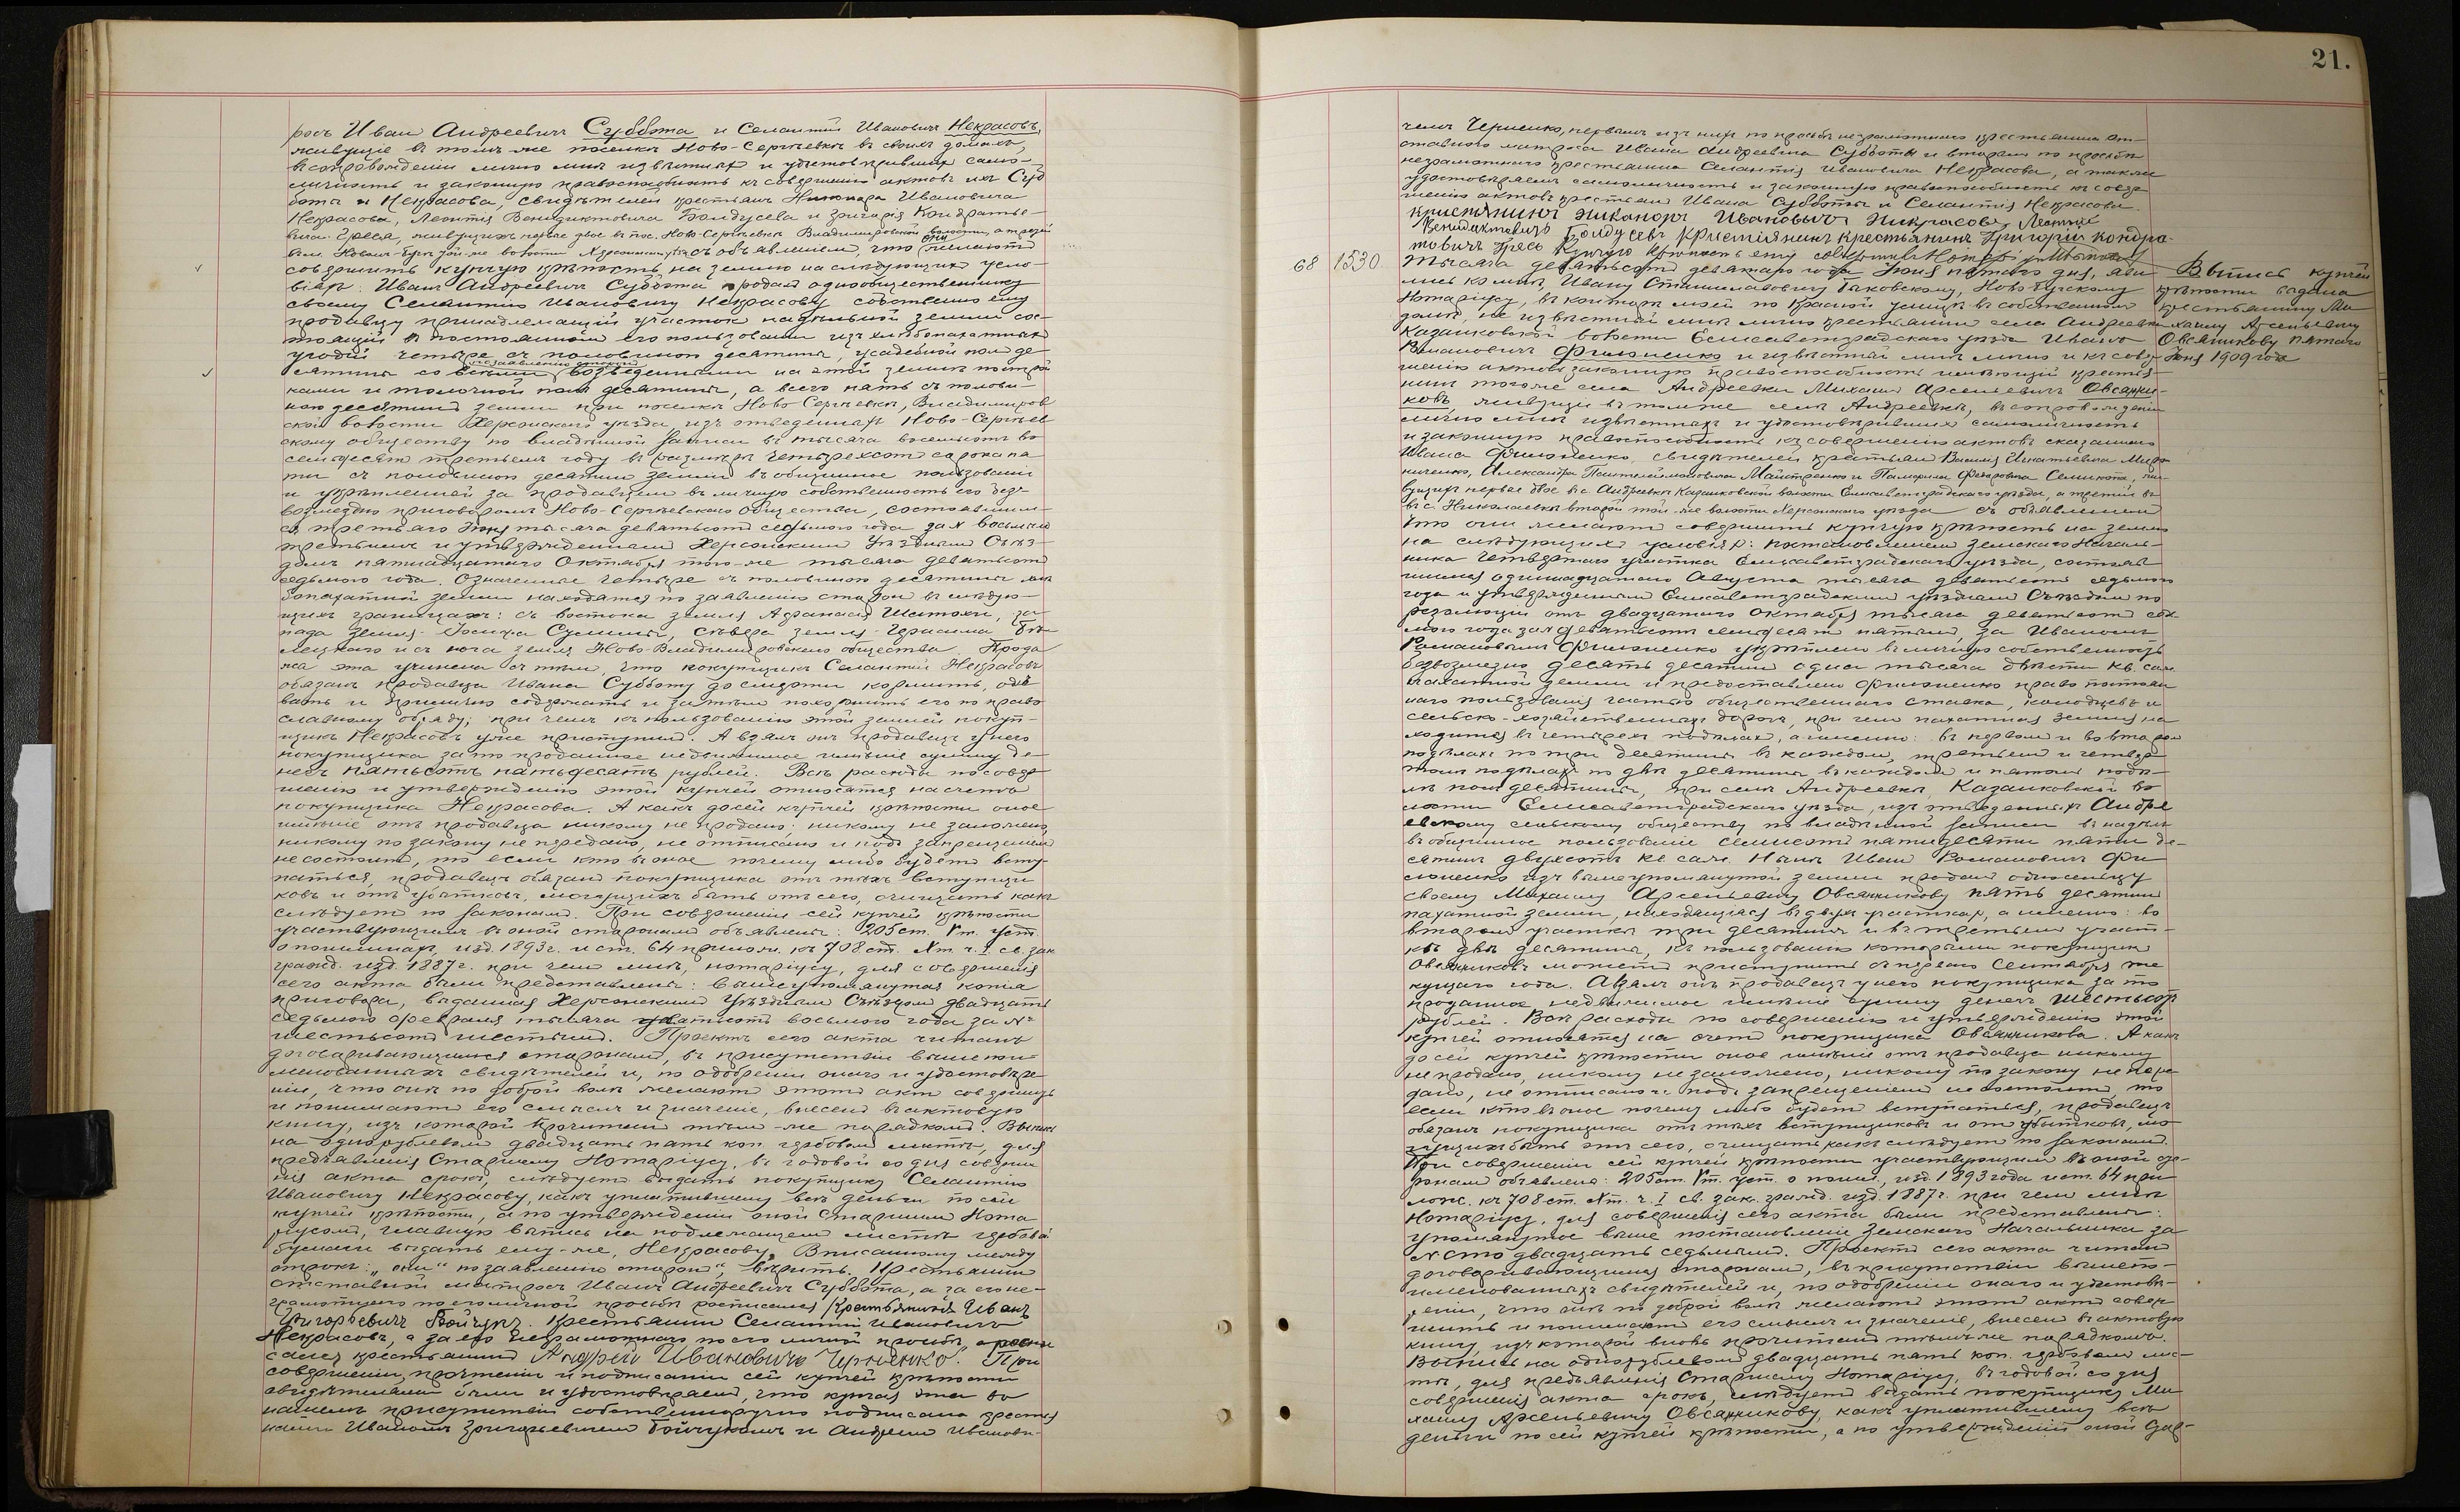 росъ Иванъ Андреевичъ Суббота и Селантій Ивановичъ Некрасовъ,
живущіе въ томъ-же поселкѣ Ново-Сергѣевкѣ въ своихъ домахъ,
въ сопровожденіи лично мнѣ извѣстныхъ и удостовѣрившихъ само-
личность и законную правоспособность къ совершенію актовъ ихъ Суб
боты и Некрасова, свидѣтелей крестьянъ Никонара Ивановича
Некрасова, Леонтія Венидиктовича Болдусева и Григорія Кондратье-
вича Греся, живущихъ первые двое въ пос. Ново-Сергѣевкѣ Владимировской волости, а третій
въ той-же волости Херсонскаго уѣзда съ объявленіемъ, что они желаютъ
совершить купчую крѣпость на землю на слѣдующихъ усло-
віяхъ: Иванъ Андреевичъ Суббота продалъ однообщественнику
своему Селантію Ивановичу Некрасову собственно ему
продавцу принадлежащій участокъ надѣльной земли сос-
тоящій въ постоянномъ его пользованіи изъ хлѣбопахатныхъ
угодій четыре съ половиною десятины, усадебной пол де
сятины со всѣми по заявленію сторонъ возведенными на этой земли построй
ками и толочной пол десятины, а всего пять съ полови-
ною десятинъ земли при поселкѣ Ново-Сергѣевкѣ, Владимиров
ской волости Херсонскаго уѣзда изъ отведенныхъ Ново-Сергѣев
скому обществу по владѣнной записи въ тысяча восемьсотъ во
семьдесят третьемъ году въ размѣрѣ четырехсот сорока пя
ти съ половиною десятин земли въ общинное пользованіе
и укрѣпленной за продавцемъ въ личную собственность его без-
возмездно приговоромъ Ново-Сергѣевскаго общества, состоявшим-
ся третьяго Іюня тысяча девятьсотъ седьмого года за № восьмым
третьимъ и утвержденнымъ Херсонскимъ Уѣзднымъ Съѣз-
домъ пятнадцатаго Октября того-же тысяча девятьсотъ
седьмого года. Означенные четыре съ половиною десятины хлѣ
бопахатной земли находятся по заявленію сторон въ слѣдую-
щихъ границахъ: съ востока земля Афанасія Шитохи, за-
пада земля Сулимы, сѣвера земля Герасима Бѣ
лецкаго и съ юга земля Ново-Владимировскаго общества. Прода
жа эта учинена съ тѣмъ, что покупщикъ Селантій Некрасовъ
обязанъ продавца Ивана Субботу до смерти кормить, одѣ
вать и прилично содержать и затѣмъ похоронить его по право
славному обряду; при чемъ къ пользованію этой землей покуп-
щикъ Некрасовъ уже приступилъ. А взялъ онъ продавецъ у него
покупщика за то проданное недвижимое имѣніе сумму де-
негъ пятьсотъ пятьдесятъ рублей. Всѣ расходы по совер
шенію и утвержденію этой купчей относятся на счетъ
покупщика Некрасова. А какъ до сей купчей крѣпости оное
имѣніе отъ продавца никому не продано, никому не заложено,
никому по закону не передано, не отписано и подъ запрещеніемъ
не состоитъ, то если кто въ оное почему либо будетъ всту-
паться, продавецъ обязанъ покупщика отъ тѣхъ вступщи
ковъ и отъ убытковъ, могущихъ быть отъ сего, очищать какъ
слѣдуетъ по законамъ. При совершеніи сей купчей крѣпости
участвующимъ въ оной сторонамъ объявлены: 205 ст. V т. уст.
о пошлинахъ изд. 1893 г. и ст. 64 прилож. къ 708 ст. X т. ч. I. св. зак.
гражд. изд. 1887 г. при чем мнѣ, нотаріусу, для совершенія
сего акта были представлены: вышеупомянутая копія
приговора, выданная Херсонскимъ Уѣзднымъ Съѣздомъ двадцать
седьмого февраля тысяча девятьсотъ восьмого года за №
шестьсотъ шестымъ. Проектъ сего акта читанъ
договаривающимся сторонамъ, въ присутствіи вышепои-
менованныхъ свидѣтелей и, по одобреніи онаго и удостовѣре
ніи, что они по доброй волѣ желаютъ этотъ актъ совершить
и понимаютъ его смыслъ и значеніе, внесенъ въ актовую
книгу, изъ которой прочитанъ тѣмъ-же порядкомъ. Выпись
на однорублевомъ двадцать пять коп. гербовомъ листѣ, для
предъявленія Старшему Нотаріусу, въ годовой со дня соверше
нія акта срокъ, слѣдуетъ выдать покупщику Селантію
Ивановичу Некрасову, какъ уплатившему всѣ деньги по сей
купчей крѣпости, а по утвержденіи оной Старшимъ Нота
ріусомъ, главную выпись на подлежащемъ листѣ гербовой
бумаги выдать ему-же, Некрасову. Вписанному между
строкъ: „они“ „по заявленію сторонъ“, вѣрить. Крестьянинъ
отставной матросъ Иванъ Андреевичъ Суббота, а за его не-
грамотнаго по его личной просьбѣ росписался крестьянинъ Иванъ
Григорьевичъ Бойчукъ. Крестьянинъ Селантій Ивановичъ
Некрасовъ, а за его неграмотнаго по его личной просьбѣ, роспи
сался крестьянинъ Андрей Ивановичъ Черненко. При
совершеніи, прочтеніи и подписаніи сей купчей крѣпости
свидѣтелями были и удостовѣряемъ, что купчая эта въ
нашемъ присутствіи собственноручно подписана крестья
нами Иваномъ Григорьевичемъ Бойчукомъ и Андреемъ Иванови-
21.
чемъ Черненко, первымъ изъ нихъ по просьбѣ неграмотнаго крестьянина от-
ставного матроса Ивана Андреевича Субботы и вторымъ по просьбѣ
неграмотнаго крестьянина Селантія Ивановича Некрасова, а также
удостовѣряемъ самоличность и законную правоспособность къ совер
шенію актовъ крестьянъ Ивана Субботы и Селантія Некрасова.
кристянинъ Никаноръ Ивановичъ Никрасовъ, Леонтій
Венидиктовичъ Болдусевъ кристиянинъ крестьянинъ Григорій Кондра-
товичъ Гресь Купчую крѣпость сію совершилъ Нотаріусъ
68 1530 Тысяча девятьсотъ девятаго года Іюня пятаго дня, яви
лись ко мнѣ, Ивану Станиславовичу Быковскому, Ново-Бугскому
Нотаріусу, въ контору мою по Красной улицѣ въ собственномъ
домѣ, не извѣстный мнѣ лично крестьянин села Андреевки
Казанковской волости Елисаветградскаго уѣзда Иванъ
Романовичъ Филоненко и извѣстный мнѣ лично и къ совер
шенію актовъ законную правоспособность имѣющій крестья-
нинъ того-же села Андреевки Михаилъ Арсеньевичъ Овсянни-
ковъ живущіе въ томже селѣ Андреевкѣ, въ сопровожденіи
лично мнѣ извѣстныхъ и удостовѣрившихъ самоличность
и законную правоспособность къ совершенію актовъ сказаннаго
Ивана Филоненко, свидѣтелей крестьян Василія Игнатьевича Миро
ниченко, Александра Пантелеймоновича Майстренко и Федоровича Семикота, жи
вущихъ первые двое въ с. Андреевкѣ Казанковской волости Елисаветградскаго уѣзда, а третій въ
въ с. Николаевкѣ второй той-же волости Херсонскаго уѣзда съ объявленіемъ
что они желаютъ совершить купчую крѣпость на землю
на слѣдующихъ условіяхъ: постановленіемъ Земскаго Началь-
ника четвертаго участка Елисаветградскаго уѣзда, состояв
шимся одиннадцатаго Августа тысяча девятьсотъ седьмого
года и утвержденнымъ Елисаветградскимъ уѣзднымъ Съѣздомъ по
резолюціи отъ двадцатаго Октября тысяча девятьсотъ седь
мого года за № девятьсотъ семьдесят пятымъ, за Иваномъ
Романовымъ Филоненко укрѣплено въ личную собственность
безвозмездно десять десятин одна тысяча двѣсти кв. саж.
пахатной земли и предоставлено Филоненко право постоян
наго пользованія частью общественнаго ставка, колодцевъ и
сельско-хозяйственныхъ дорогъ, при чем пахатная земля на
ходится въ четырехъ подѣлахъ, а именно: въ первомъ и во второмъ
подѣлахъ по три десятины въ каждом, третьемъ и четвер
томъ подѣлахъ по двѣ десятины въ каждом и пятомъ подѣ-
лѣ пол десятины, при селѣ Андреевкѣ, Казанковской во
лости Елисаветградскаго уѣзда, изъ отведенныхъ Андре
евскому сельскому обществу по владѣнной записи въ надѣлъ
въ общинное пользованіе семисотъ пятидесяти пяти де-
сятинъ двухсотъ кв саж. Нынѣ Иванъ Романовичъ Фи
лоненко изъ вышеупомянутой земли продалъ односельцу
своему Михаилу Арсеньевичу Овсянникову пять десятинъ
пахатной земли, находящіяся въ двухъ участкахъ, а именно: во
второмъ участкѣ три десятины и въ третьемъ участ-
кѣ двѣ десятины, къ пользованію которыми покупщикъ
Овсянниковъ можетъ приступить съ перваго Сентября те
кущаго года. А взялъ онъ продавецъ у него покупщика за то
проданное недвижимое имѣніе сумму денегъ шестьсотъ
рублей. Всѣ расходы по совершенію и утвержденію этой
купчей относятся на счетъ покупщика Овсянникова. А какъ
до сей купчей крѣпости оное имѣніе отъ продавца никому
не продано, никому не заложено, никому по закону не пере-
дано, не отписано и подъ запрещеніемъ не состоитъ, то
если кто въ оное почему либо будетъ вступаться, продавецъ
обязанъ покупщика отъ тѣхъ вступщиковъ и отъ убытковъ, мо
гущихъ быть отъ сего, очищать какъ слѣдуетъ по законамъ.
При совершеніи сей купчей крѣпости участвующимъ въ оной сто-
ронамъ объявлена: 205 ст. V т. уст. о пошл., изд. 1893 года и ст. 64 при
лож. къ 708 ст. X т. ч. I св. зак. гражд. изд. 1887 г. при чем мнѣ
Нотаріусу, для совершенія сего акта были представлены:
упомянутое выше постановленіе Земскаго Начальника за
№ сто двадцать седьмымъ. Проектъ сего акта читанъ
договаривающимся сторонамъ, въ присутствіи вышепо-
именованныхъ свидѣтелей и, по одобреніи онаго и удостовѣ-
реніи, что они по доброй волѣ желаютъ этотъ актъ совер
шить и понимаютъ его смыслъ и значеніе, внесенъ въ актовую
книгу, изъ которой вновь прочитанъ тѣмъ-же порядкомъ.
Выпись на однорублевомъ двадцать пять коп. гербовомъ лис-
тѣ, для предъявленія Старшему Нотаріусу, въ годовой со дня
совершенія акта срокъ, слѣдуетъ выдать покупщику Ми
хаилу Арсеньевичу Овсянникову, какъ уплатившему всѣ
деньги по сей купчей крѣпости, а по утвержденіи оной Стар-
Выпись купчей
крѣпости выдана
крестьянину Ми
хаилу Арсеньевичу
Овсянникову пятаго
Іюня 1909 года